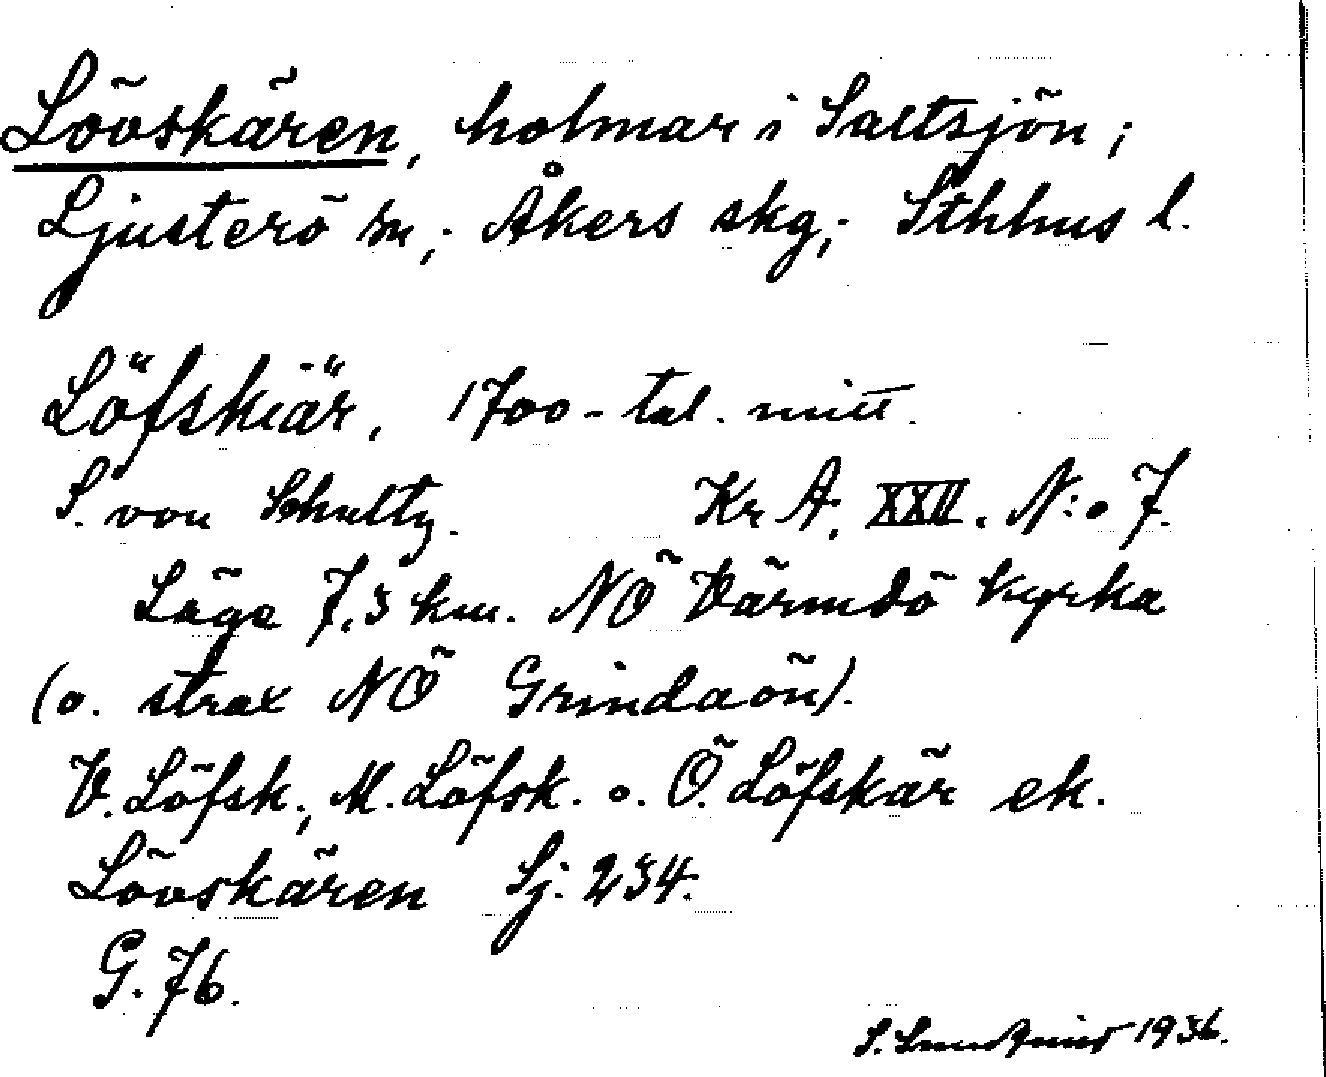 Lövskären, holmar i Saltsjön;
Ljusterö sn,; Åkers skg,; Sthlms l.
Löfskiär, 1700-tal. mitt.
S. von Schultz. Kr A. XXII. N:o 7.
Läge 7,5 km. NÖ Värmdö kyrka
(o. strax NÖ Grindaön).
V. Löfsk., M. Löfsk. o. Ö. Löfskär ek.
Lövskären Sj. 234.
G. 76.
S. 1936.